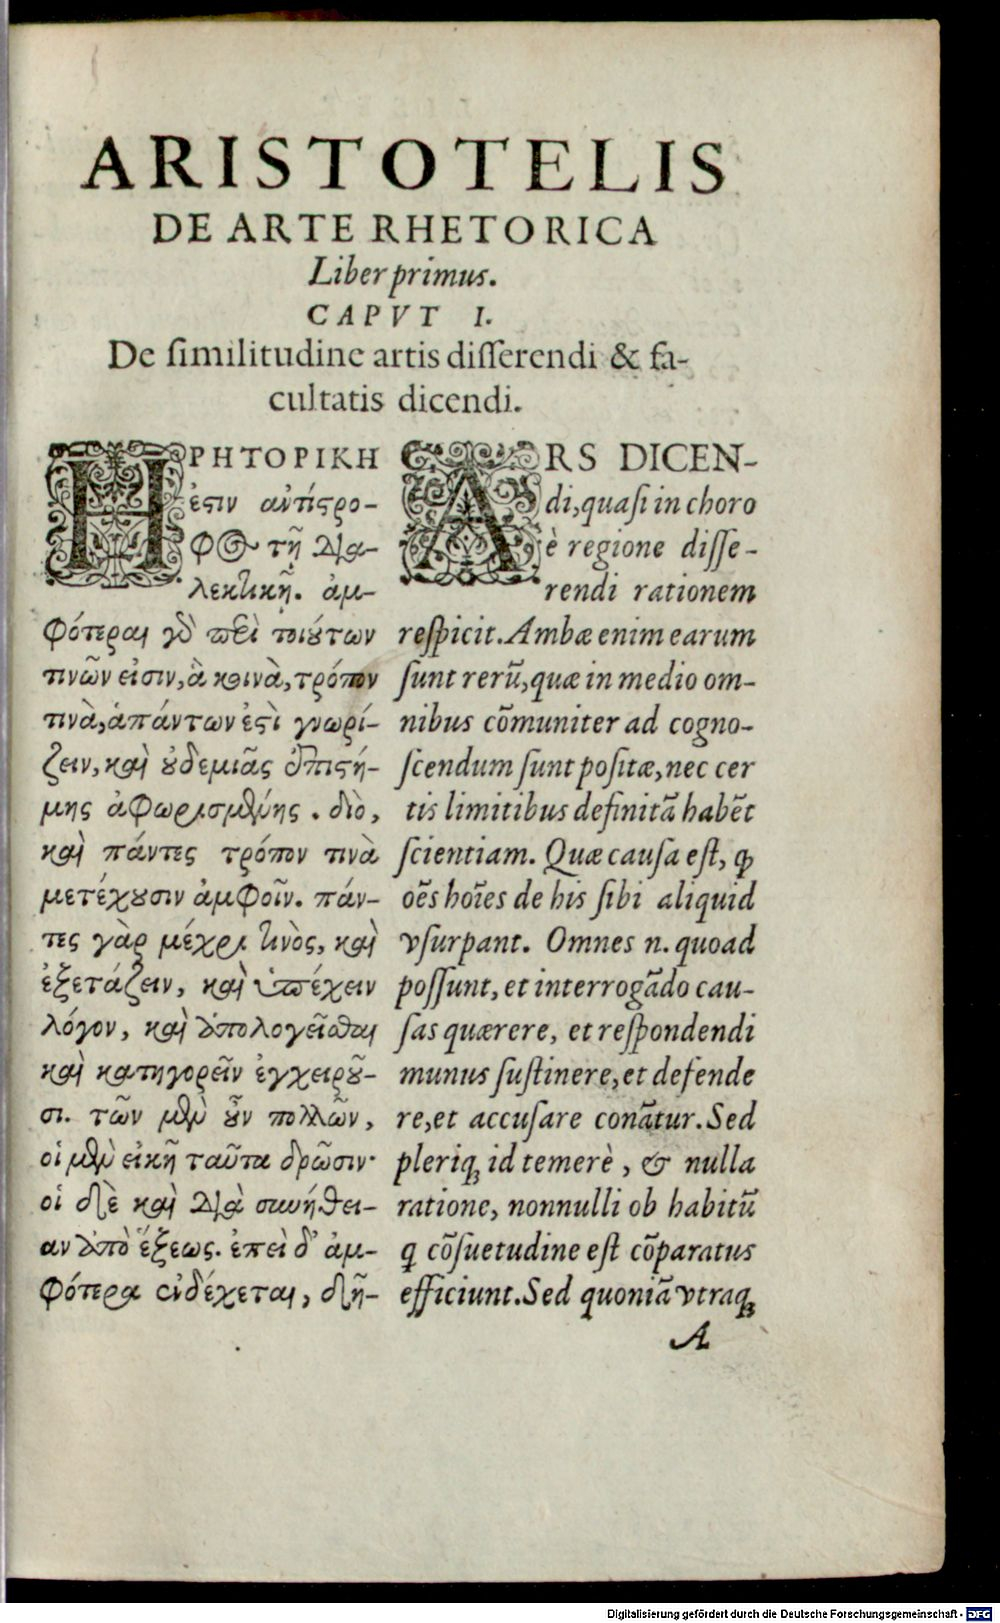 ARISTOTELIS
DE ARTE RHETORICA
Liber primus.
CAPVT I.
De similitudine artis disserendi & fa-
cultatis dicendi.
Η ΡΗΤΟΡΙΚΗ
ἐστιν ἀντίστρο-
φος τῇ δια-
λεκτικῇ. ἀμ-
φότεραι γὸ περὶ τοιούτων
τινῶν εἰσιν, ἃ κοινὰ, τρόπον
τινὰ, ἁπάντων ἐστὶ γνωρί-
ζειν, καὶ οὐδεμιᾶς ἐπιστή-
μης ἀφωρισμένης. διὸ,
καὶ πάντες τρόπον τινὰ
μετέχουσιν ἀμφοῖν. πάν-
τες γὰρ μέχρι τινὸς, καὶ
ἐξετάζειν, καὶ ὑπέχειν
λόγον, καὶ ἀπολογεῖσθαι
καὶ κατηγορεῖν ἐγχειροῦ-
σι. τῶν μὲν οὖν πολλῶν,
οἱ μὲν εἰκῆ ταῦτα δρῶσιν·
οἱ δὲ καὶ διὰ συνήθει-
αν ἀπὸ ἕξεως. ἐπεὶ δ' ἀμ-
φότερα ἐνδέχεται, δῆ-
ARS DICEN-
di, quasi in choro
è regione disse-
rendi rationem
respicit. Ambæ enim earum
sunt rerũ, quæ in medio om-
nibus cõmuniter ad cogno-
scendum sunt positæ, nec cer
tis limitibus definitã habẽt
scientiam. Quæ causa est, ꝙ
oẽs hoĩes de his sibi aliquid
vsurpant. Omnes n. quoad
possunt, et interrogãdo cau-
sas quærere, et respondendi
munus sustinere, et defende
re, et accusare conãtur. Sed
pleriq; id temerè, & nulla
ratione, nonnulli ob habitũ
q cõsuetudine est cõparatus
efficiunt. Sed quoniã vtraq;
A
Digitalisierung gefördert durch die Deutsche Forschungsgemeinschaft - DFG